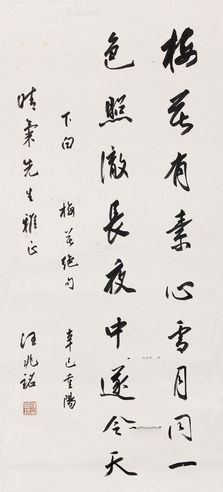 梅花有素心雪月同一
色照澈長夜中遂令天
下白　梅花絕句　辛巳重陽
晴粟先生雅正　汪兆銘